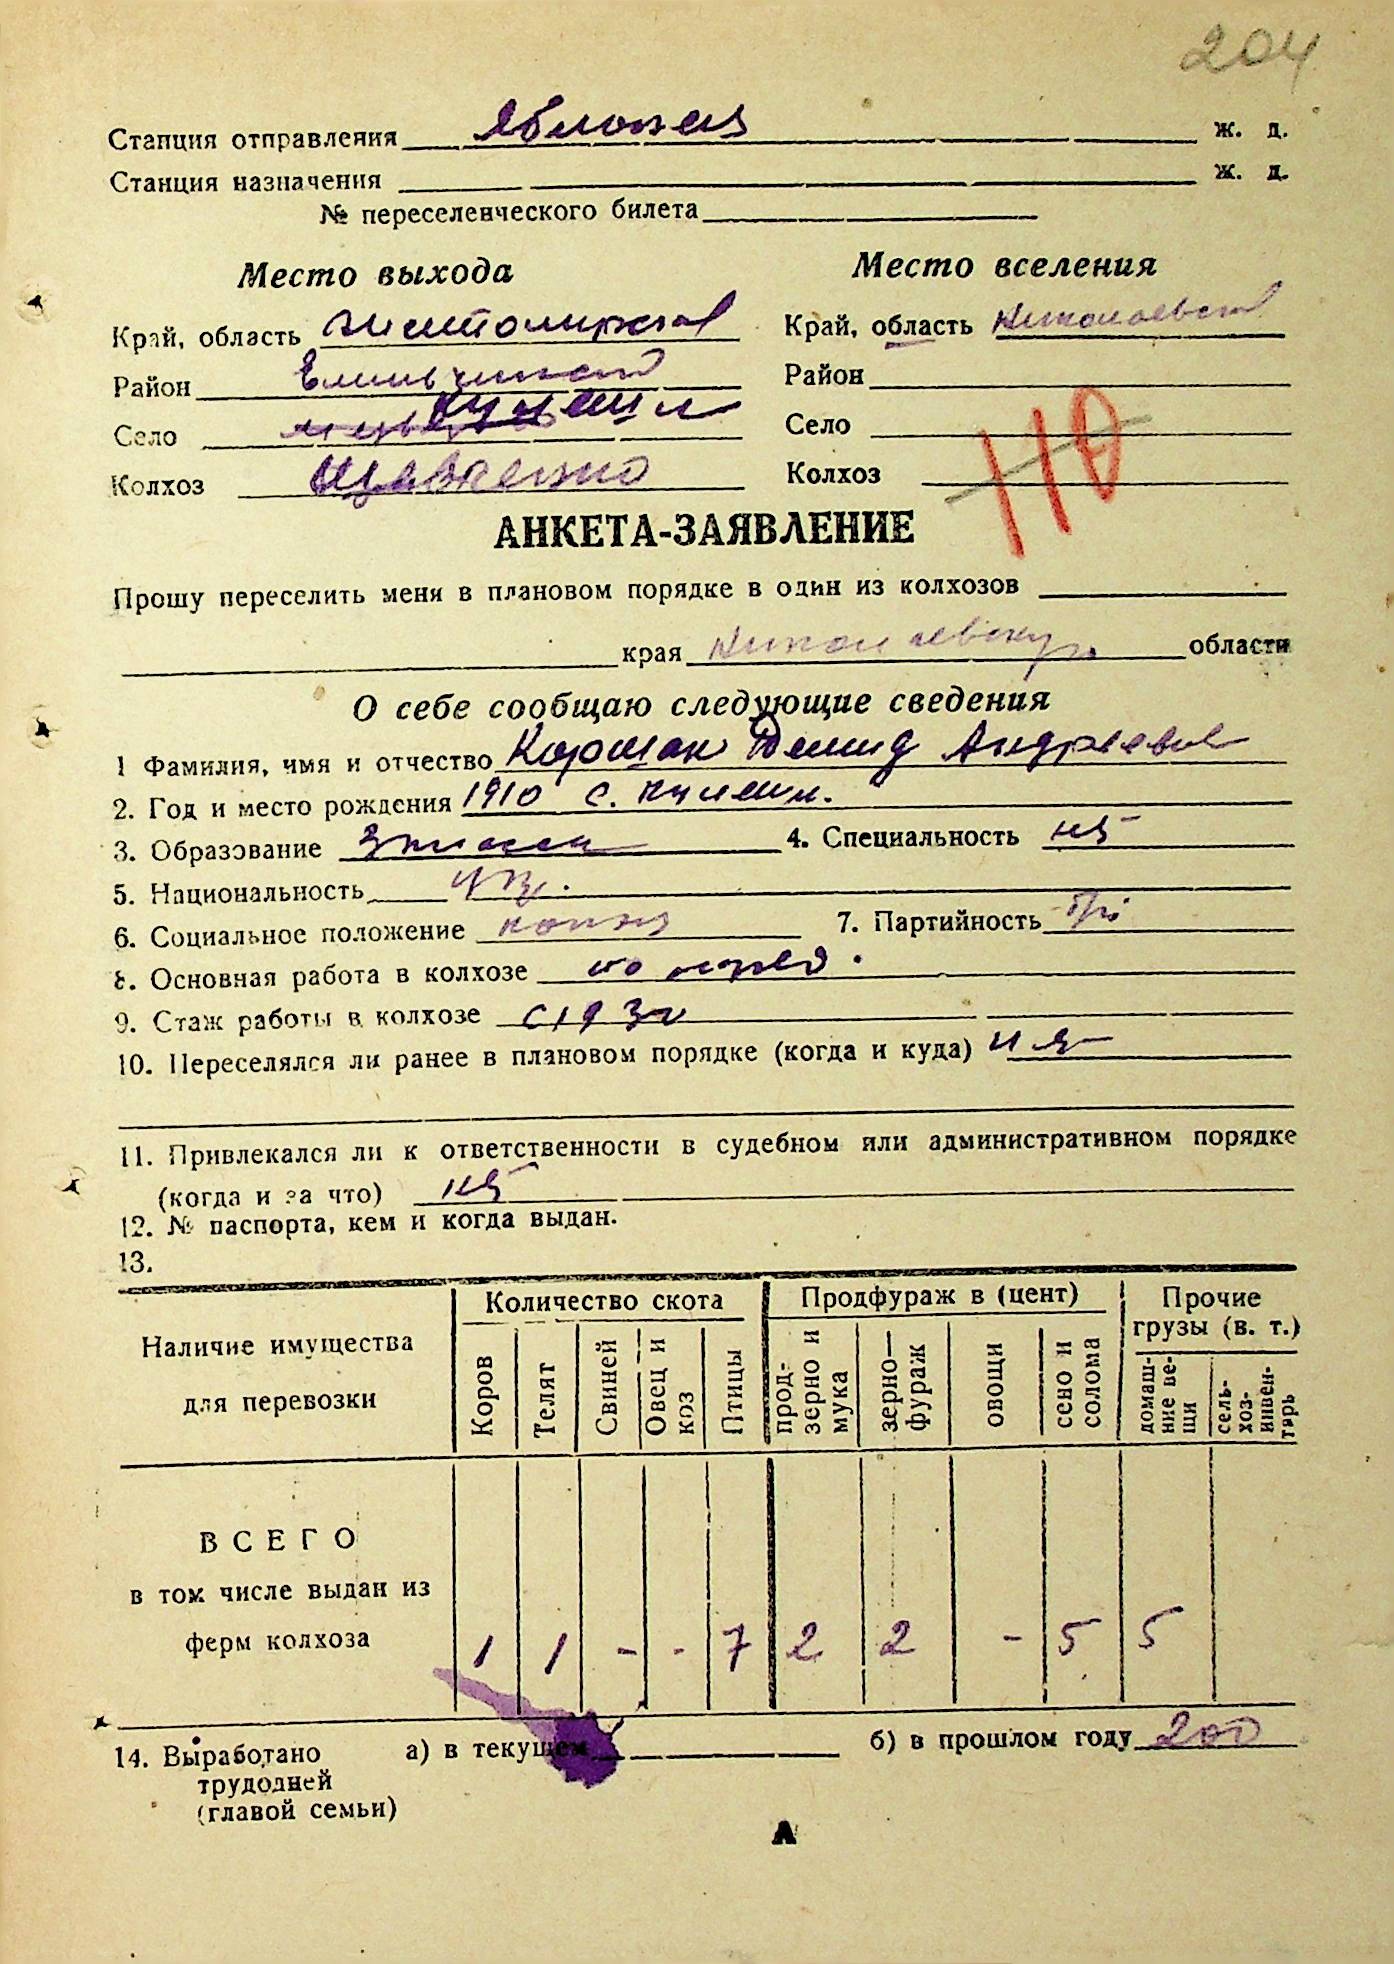 204
Станция отправления Яблонец ж. д.
Станция назначения ж. д.
№ переселенческого билета
Место выхода
Край, область Житомирская
Район Емильчинский
Село Кулиши
Колхоз Шевченко
Место вселения
Край, область Николаевская
Район
Село
Колхоз
110
АНКЕТА-ЗАЯВЛЕНИЕ
Прошу переселить меня в плановом порядке в один из колхозов
края Николаевскую области
О себе сообщаю следующие сведения
1 Фамилия, имя и отчество Коршак Демид Андреевич
2. Год и место рождения 1910 с. Кулиши.
3. Образование 3 класса 4. Специальность нет
5. Национальность укр.
6. Социальное положение колхоз 7. Партийность б/п
8. Основная работа в колхозе по наряд.
9. Стаж работы в колхозе с 193
10. Переселялся ли ранее в плановом порядке (когда и куда) нет
11. Привлекался ли к ответственности в судебном или административном порядке
(когда и за что) нет
12. № паспорта, кем и когда выдан.
13.
Наличие имущества для перевозки
Количество скота
Продфураж в (цент)
Прочие грузы (в. т.)
Коров
Телят
Свиней
Овец и коз
Птицы
прод-зерно и мука
зерно—фураж
овощи
сено и солома
домаш-ние ве-щи
сель-хоз-инвен-тарь
ВСЕГО
в том числе выдан из
ферм колхоза 1 1 - - 7 2 2 - 5 5
14. Выработано а) в текущем б) в прошлом году 200
трудодней
(главой семьи)